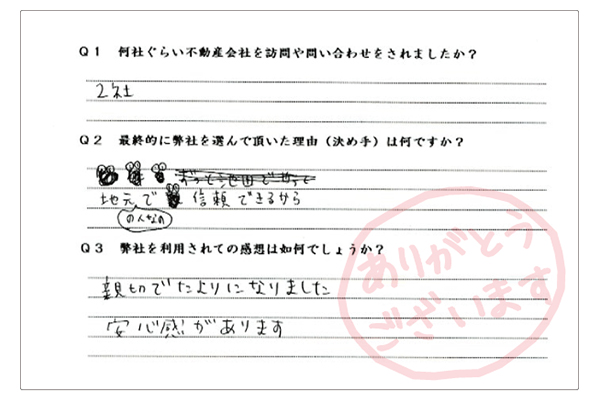 Q1 何社ぐらい不動産会社を訪問や問い合わせをされましたか?
2社
Q2 最終的に弊社を選んで頂いた理由(決め手)は何ですか?
地元で信頼できるから
の人なの
Q3 弊社を利用されての感想は如何でしょうか?
親切でたよりになりました
安心感があります
ありがとう
ございます